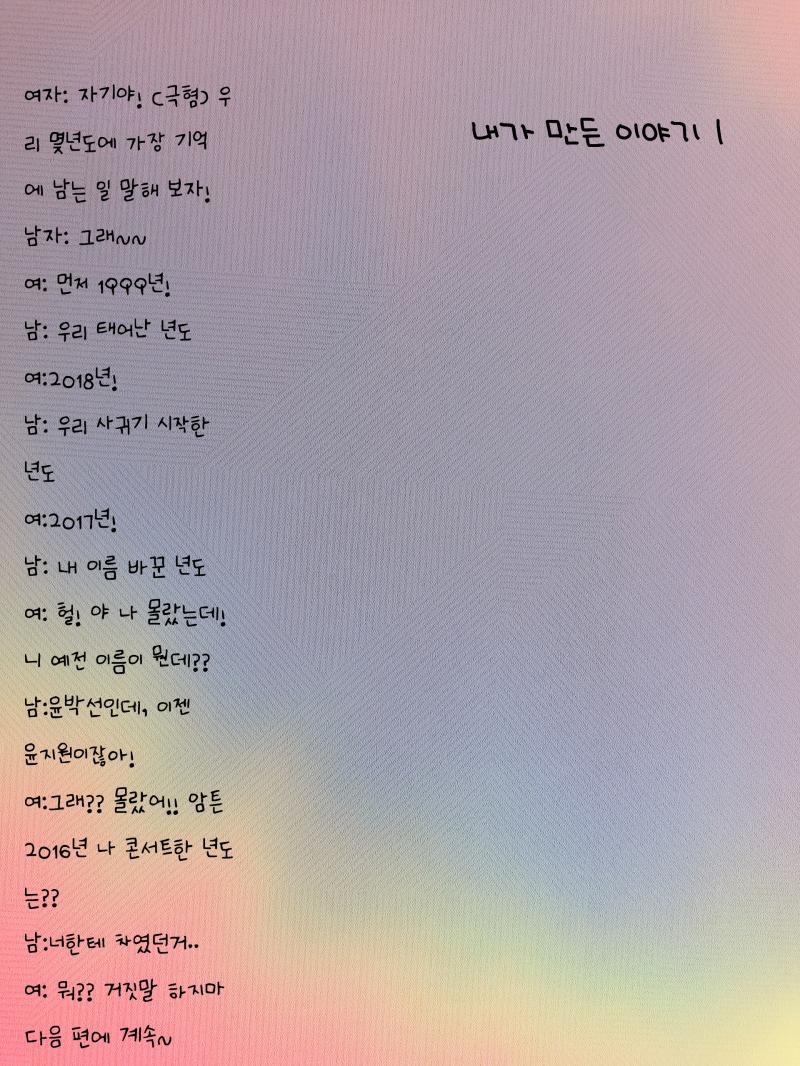 내가 만든 이야기 1
여자: 자기야! (극혐) 우
리 몇년도에 가장 기억
에 남는 일 말해 보자!
남자: 그래~~
여: 먼저 1999년!
남: 우리 태어난 년도
여:2018년!
남: 우리 사귀기 시작한
년도
여:2017년!
남: 내 이름 바꾼 년도
여: 헐! 야 나 몰랐는데!
니 예전 이름이 뭔데??
남:윤박선인데, 이젠
윤지원이잖아!
여:그래?? 몰랐어!! 암튼
2016년 나 콘서트한 년도
는??
남:너한테 차였던거..
여: 뭐?? 거짓말 하지마
다음 편에 계속~